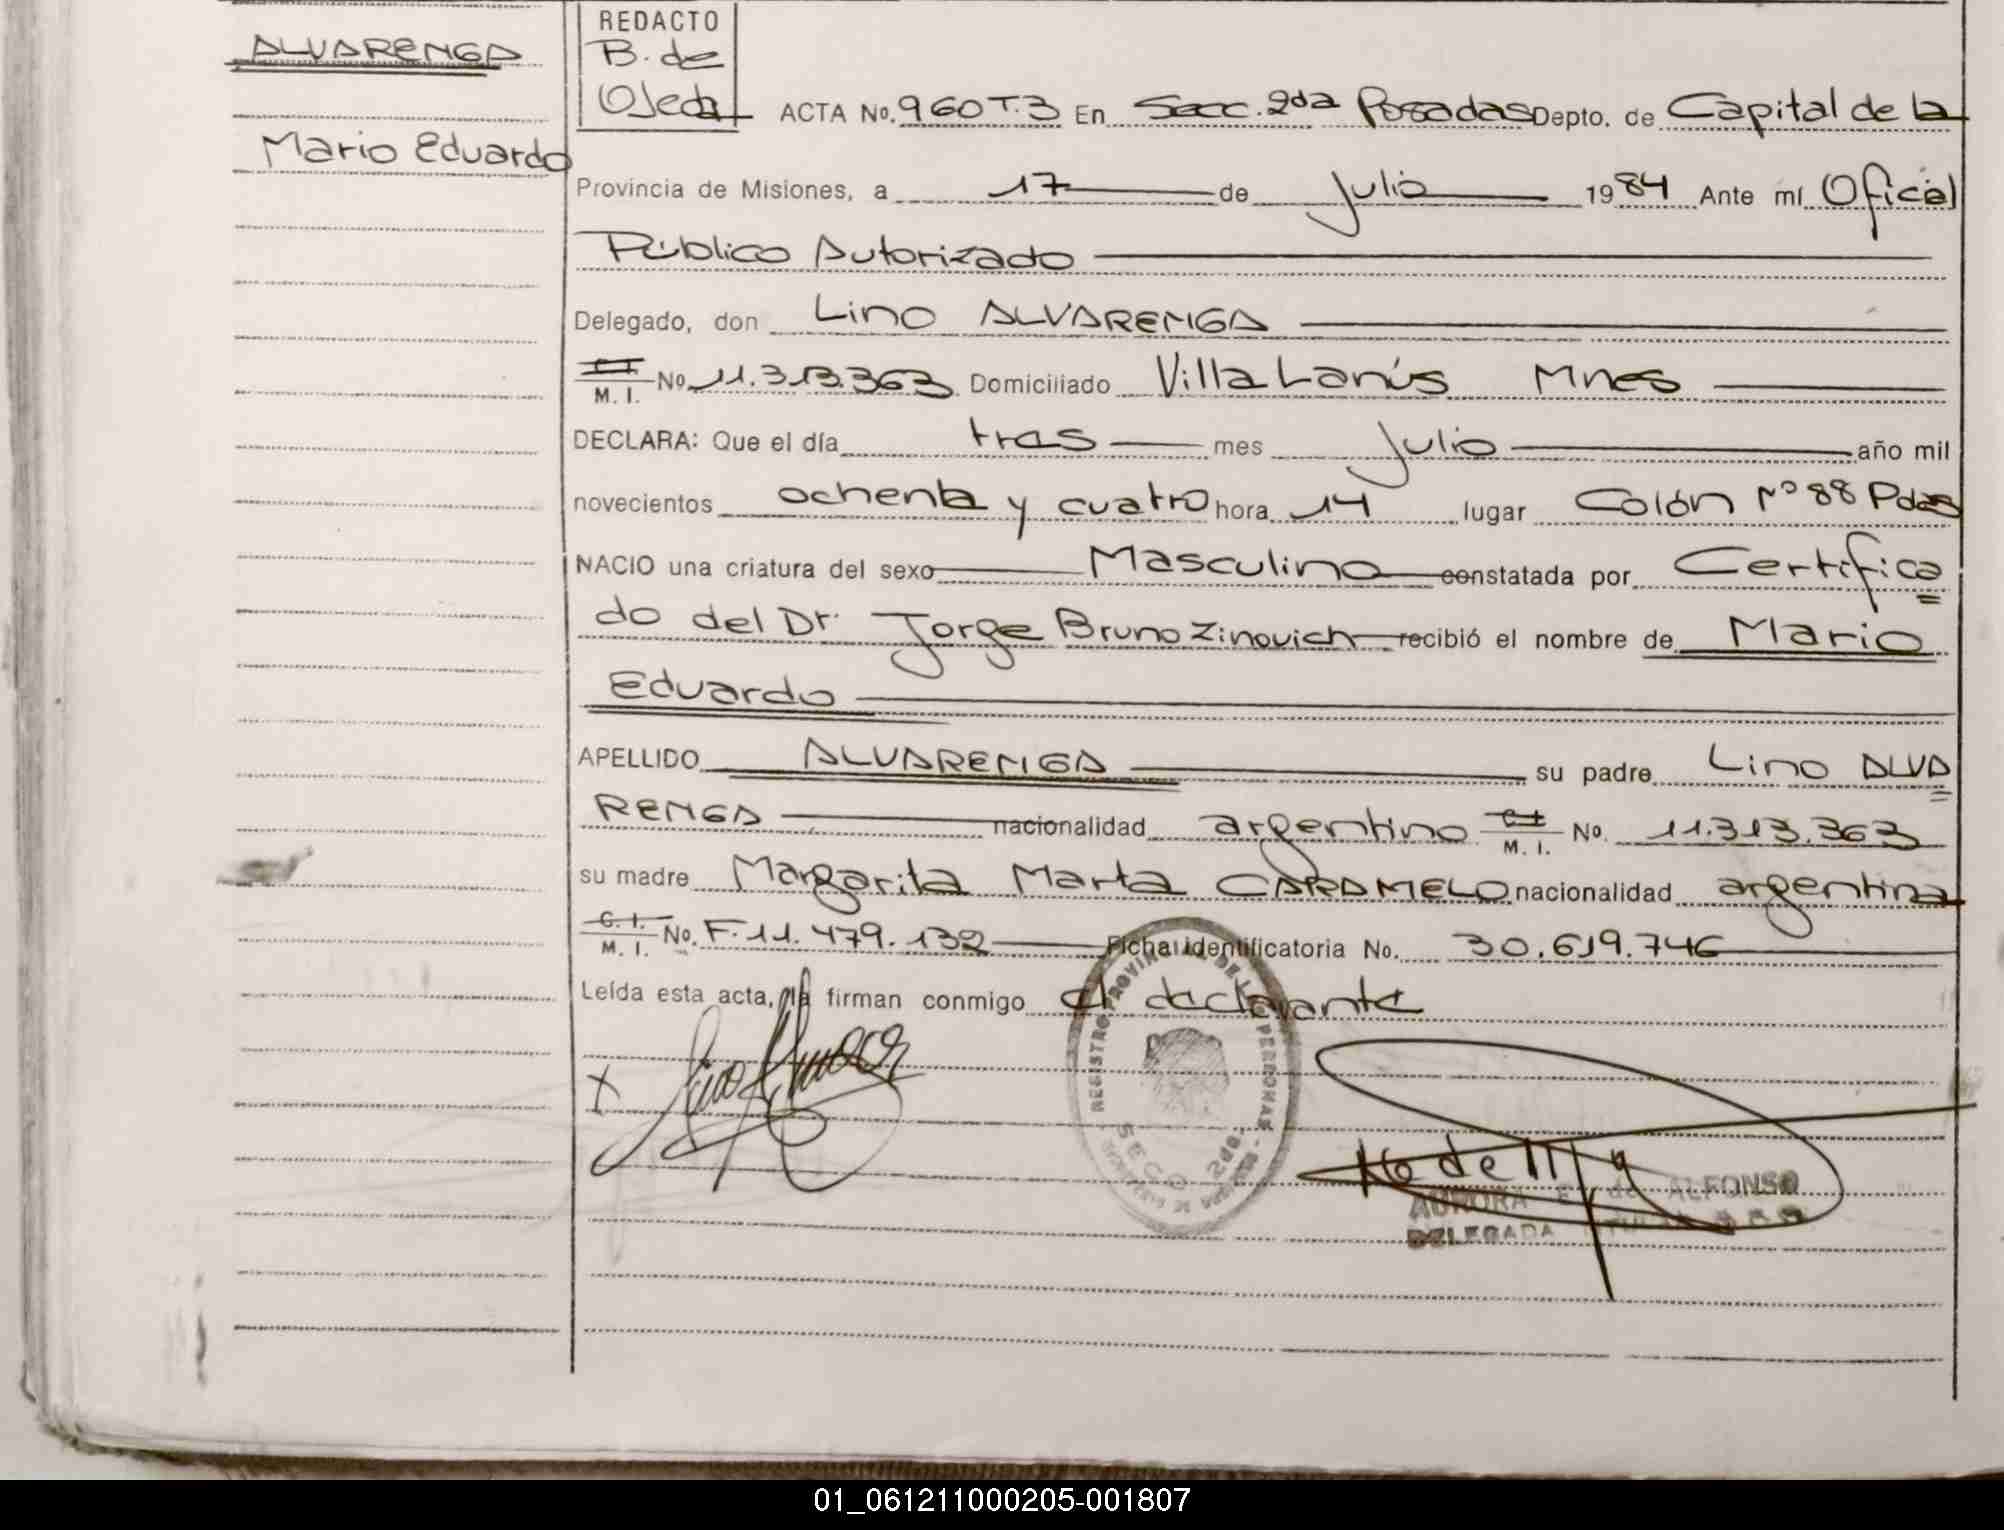 ALVARENGA
Mario Eduardo
REDACTO
B. de
Ojeda
ACTA No. 960 T.3 En Secc. 2da Posadas Depto. de Capital de la
Provincia de Misiones, a 17 de Julio 1984 Ante mí Oficial
Público Autorizado
Delegado, don Lino ALVARENGA
C.I. M. I. No. 11.313.363 Domiciliado Villa Lanús Mnes
DECLARA: Que el día tres mes Julio año mil
novecientos ochenta y cuatro hora 14 lugar Colón Nº 88 Pdas
NACIO una criatura del sexo Masculino constatada por Certifica
do del Dr. Jorge Bruno Zinovich recibió el nombre de Mario
Eduardo
APELLIDO ALVARENGA su padre Lino ALVA
RENGA nacionalidad argentino C.I. M. I. No. 11.313.363
su madre Margarita Marta CARAMELO nacionalidad argentina
C.I. M. I. No. F. 11.479.132 Ficha identificatoria No. 30.619.746
Leída esta acta, la firman conmigo el declarante
REGISTRO PROVINCIAL DE LAS PERSONAS
AURORA E. de ALFONSO
DELEGADA TITULAR
01_061211000205-001807